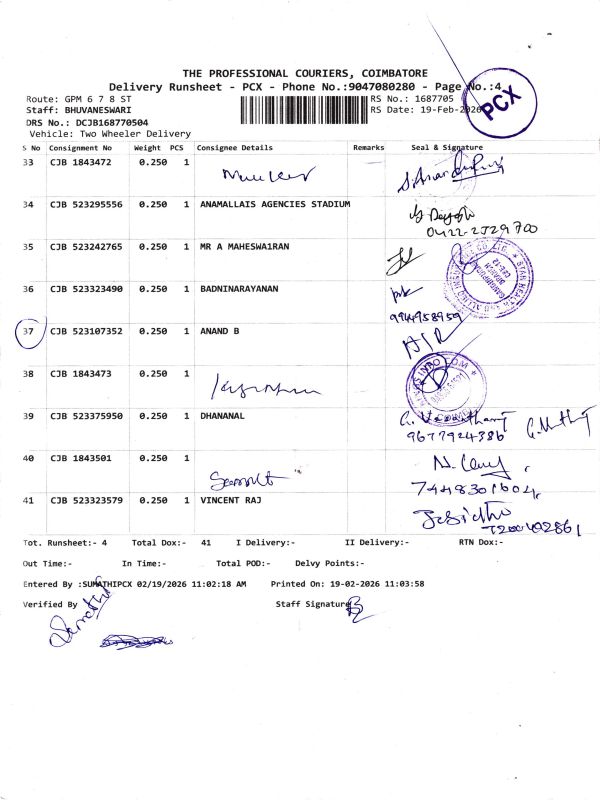 THE PROFESSIONAL COURIERS, COIMBATORE
Delivery Runsheet - PCX - Phone No.:9047080280 - Page No.:4
PCX
Route: GPM 6 7 8 ST
RS No.: 1687705
Staff: BHUVANESWARI
RS Date: 19-Feb-2026
DRS No.: DCJB168770504
Vehicle: Two Wheeler Delivery
S No Consignment No Weight PCS Consignee Details Remarks Seal & Signature
33 CJB 1843472 0.250 1
34 CJB 523295556 0.250 1 ANAMALLAIS AGENCIES STADIUM
0422-2529700
35 CJB 523242765 0.250 1 MR A MAHESWA1RAN
36 CJB 523323490 0.250 1 BADNINARAYANAN
9944958959
37 CJB 523107352 0.250 1 ANAND B
38 CJB 1843473 0.250 1
39 CJB 523375950 0.250 1 DHANANAL
9677924386
40 CJB 1843501 0.250 1
7448301604
41 CJB 523323579 0.250 1 VINCENT RAJ
7200402861
Tot. Runsheet:- 4 Total Dox:- 41 I Delivery:- II Delivery:- RTN Dox:-
Out Time:- In Time:- Total POD:- Delvy Points:-
Entered By :SUMATHIPCX 02/19/2026 11:02:18 AM Printed On: 19-02-2026 11:03:58
Verified By Staff Signature